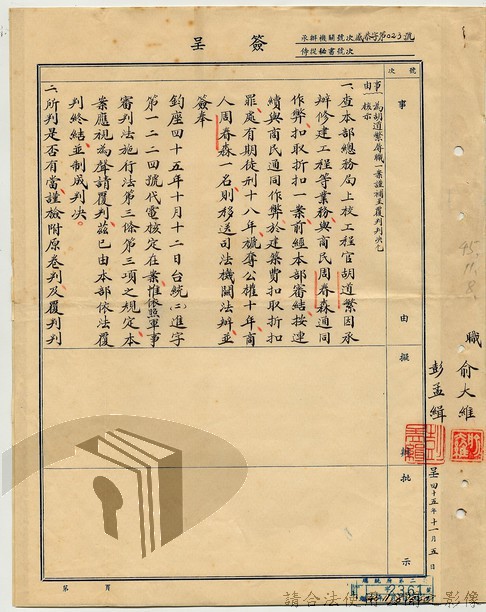 簽呈
承辦機關號次威恭字第023號
侍從秘書號次
號次
事由
擬辦
批示
事由 為胡道繁瀆職一案謹補呈覆判判決乞核示
一、查本部總務局上校工程官胡道繁因承
辦修建工程等業務與商民周春森通同
作弊扣取折扣一案前經本部審結按連
續與商民通同作弊於建築費扣取折扣
罪處有期徒刑十八年褫奪公權十年商
人周春森一名則移送司法機關法辦並
簽奉
鈞座四十五年十月十二日台統(二)進字
第一二二四號代電核定在案惟依照軍事
審判法施行法第三條第三項之規定本
案應視為聲請覆判茲已由本部依法覆
判終結並制成判決。
二、所判是否有當謹檢附原卷判及覆判判
職 俞大維
彭孟緝
呈四十五年十一月五日
45.11.8.
第 頁
2361
請合法使用檔案影像